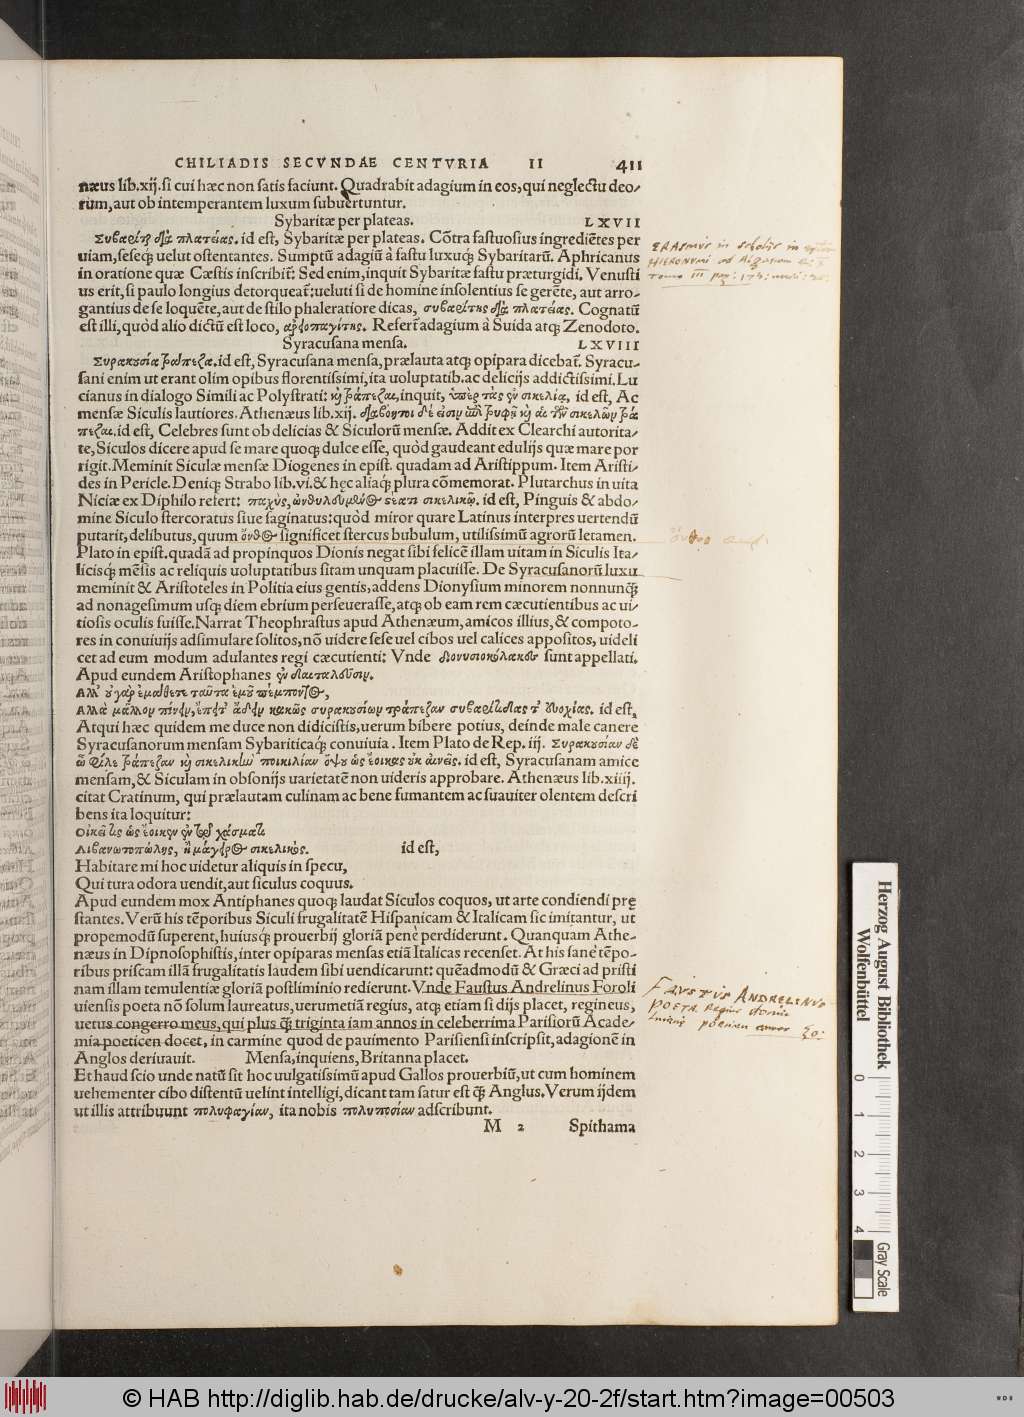 CHILIADIS SECVNDAE CENTVRIA II 411
næus lib.xij.si cui hæc non satis faciunt. Quadrabit adagium in eos, qui neglectu deo/
rum, aut ob intemperantem luxum subuertuntur.
Sybaritæ per plateas. LXVII
Συβαρῖτ διὰ πλατείας. id est, Sybaritæ per plateas. Cōtra fastuosius ingrediētes per
uiam, seseqȝ uelut ostentantes. Sumptū adagiū à fastu luxuqȝ Sybaritarū. Aphricanus
in oratione quæ Cæstis inscribit̃: Sed enim, inquit Sybaritæ fastu præturgidi. Venusti
us erit, si paulo longius detorqueat̃: ueluti si de homine insolentius se gerēte, aut arro/
gantius de se loquēte, aut de stilo phaleratiore dicas, συβαρίτης διὰ πλατείας. Cognatū
est illi, quòd alio dictū est loco, ἀρεοπαγίτης. Refert̃ adagium à Suida atqȝ Zenodoto.
Syracusana mensa. LXVIII
Συρακουσία τράπεζα. id est, Syracusana mensa, prælauta atqȝ opipara dicebat̃. Syracu/
sani enim ut erant olim opibus florentissimi, ita uoluptatib. ac delicijs addictissimi. Lu
cianus in dialogo Simili ac Polystrati: καὶ τράπεζαι, inquit, ὑπὲρ τὰς ἐν σικελίᾳ, id est, Ac
mensæ Siculis lautiores. Athenæus lib.xij. διαβόητοι δέ εἰσιν ἐπὶ τρυφῇ καὶ αἱ τῶν σικελῶν τρά
πεζαι. id est, Celebres sunt ob delicias & Siculorū mensæ. Addit ex Clearchi autorita/
te, Siculos dicere apud se mare quoqȝ dulce esse, quòd gaudeant edulijs quæ mare por
rigit. Meminit Siculæ mensæ Diogenes in epist. quadam ad Aristippum. Item Aristi/
des in Pericle. Deniqȝ Strabo lib.vi. & hęc aliaqȝ plura cōmemorat. Plutarchus in uita
Niciæ ex Diphilo refert: παχὺς, ὠνθυλευμένος στέατι σικελικῷ. id est, Pinguis & abdo/
mine Siculo stercoratus siue saginatus: quòd miror quare Latinus interpres uertendū
putarit, delibutus, quum ὄνθος significet stercus bubulum, utilissimū agrorū letamen.
Plato in epist. quadā ad propinquos Dionis negat sibi felicē illam uitam in Siculis Ita/
licisqȝ mēsis ac reliquis uoluptatibus sitam unquam placuisse. De Syracusanorū luxu
meminit & Aristoteles in Politia eius gentis, addens Dionysium minorem nonnunqȝ
ad nonagesimum usqȝ diem ebrium perseuerasse, atqȝ ob eam rem cæcutientibus ac ui/
tiosis oculis fuisse. Narrat Theophrastus apud Athenæum, amicos illius, & compoto/
res in conuiuijs adsimulare solitos, nō uidere sese uel cibos uel calices appositos, uideli
cet ad eum modum adulantes regi cæcutienti: Vnde διονυσιοκόλακες sunt appellati.
Apud eundem Aristophanes ἐν δαιταλεῦσιν.
Ἀλλ' οὐ γὰρ ἔμαθετε ταῦτα ἐμοῦ πέμποντος,
Ἀλλὰ μᾶλλον πίνειν, ἔπειτ' ᾄδειν κακῶς συρακουσίων τράπεζαν συβαρίτιδάς τ' εὐωχίας. id est,
Atqui hæc quidem me duce non didicistis, uerum bibere potius, deinde male canere
Syracusanorum mensam Sybariticaqȝ conuiuia. Item Plato de Rep. iij. Συρακουσίαν δὲ
ὦ φίλε τράπεζαν καὶ σικελικὴν ποικιλίαν ὄψου ὡς ἔοικας οὐκ αἰνεῖς. id est, Syracusanam amice
mensam, & Siculam in obsonijs uarietatē non uideris approbare. Athenæus lib.xiiij.
citat Cratinum, qui prælautam culinam ac bene fumantem ac suauiter olentem descri
bens ita loquitur:
Οἰκεῖ τις ὡς ἔοικεν ἐν τῷ χάσματι
Λιβανωτοπώλης, ἢ μάγειρος σικελικός. id est,
Habitare mi hoc uidetur aliquis in specu,
Qui tura odora uendit, aut siculus coquus.
Apud eundem mox Antiphanes quoqȝ laudat Siculos coquos, ut arte condiendi prę
stantes. Verū his tēporibus Siculi frugalitatē Hispanicam & Italicam sic imitantur, ut
propemodū superent, huiusqȝ prouerbij gloriā penè perdiderunt. Quanquam Athe/
næus in Dipnosophistis, inter opiparas mensas etiā Italicas recenset. At his sanè tēpo/
ribus priscam illā frugalitatis laudem sibi uendicarunt: quēadmodū & Græci ad pristi
nam illam temulentiæ gloriā postliminio redierunt. Vnde Faustus Andrelinus Foroli
uiensis poeta nō solum laureatus, uerumetiā regius, atqȝ etiam si dijs placet, regineus,
uetus congerro meus, qui plus qȝ triginta iam annos in celeberrima Parisiorū Acade/
mia poeticen docet, in carmine quod de pauimento Parisiensi inscripsit, adagionē in
Anglos deriuauit. Mensa, inquiens, Britanna placet.
Et haud scio unde natū sit hoc uulgatissimū apud Gallos prouerbiū, ut cum hominem
uehementer cibo distentū uelint intelligi, dicant tam satur est qȝ Anglus. Verum ijdem
ut illis attribuunt πολυφαγίαν, ita nobis πολυποσίαν adscribunt.
M 2 Spithama
ERASMVS in scholijs in
HIERONYMI ad
Tomo III pag: 173:
ὄνθος
FAVSTVS ANDRELINVS
POETA Regius
annos 30:
Herzog August Bibliothek
Wolfenbüttel
0 1 2 3 4
Gray Scale
© HAB http://diglib.hab.de/drucke/alv-y-20-2f/start.htm?image=00503